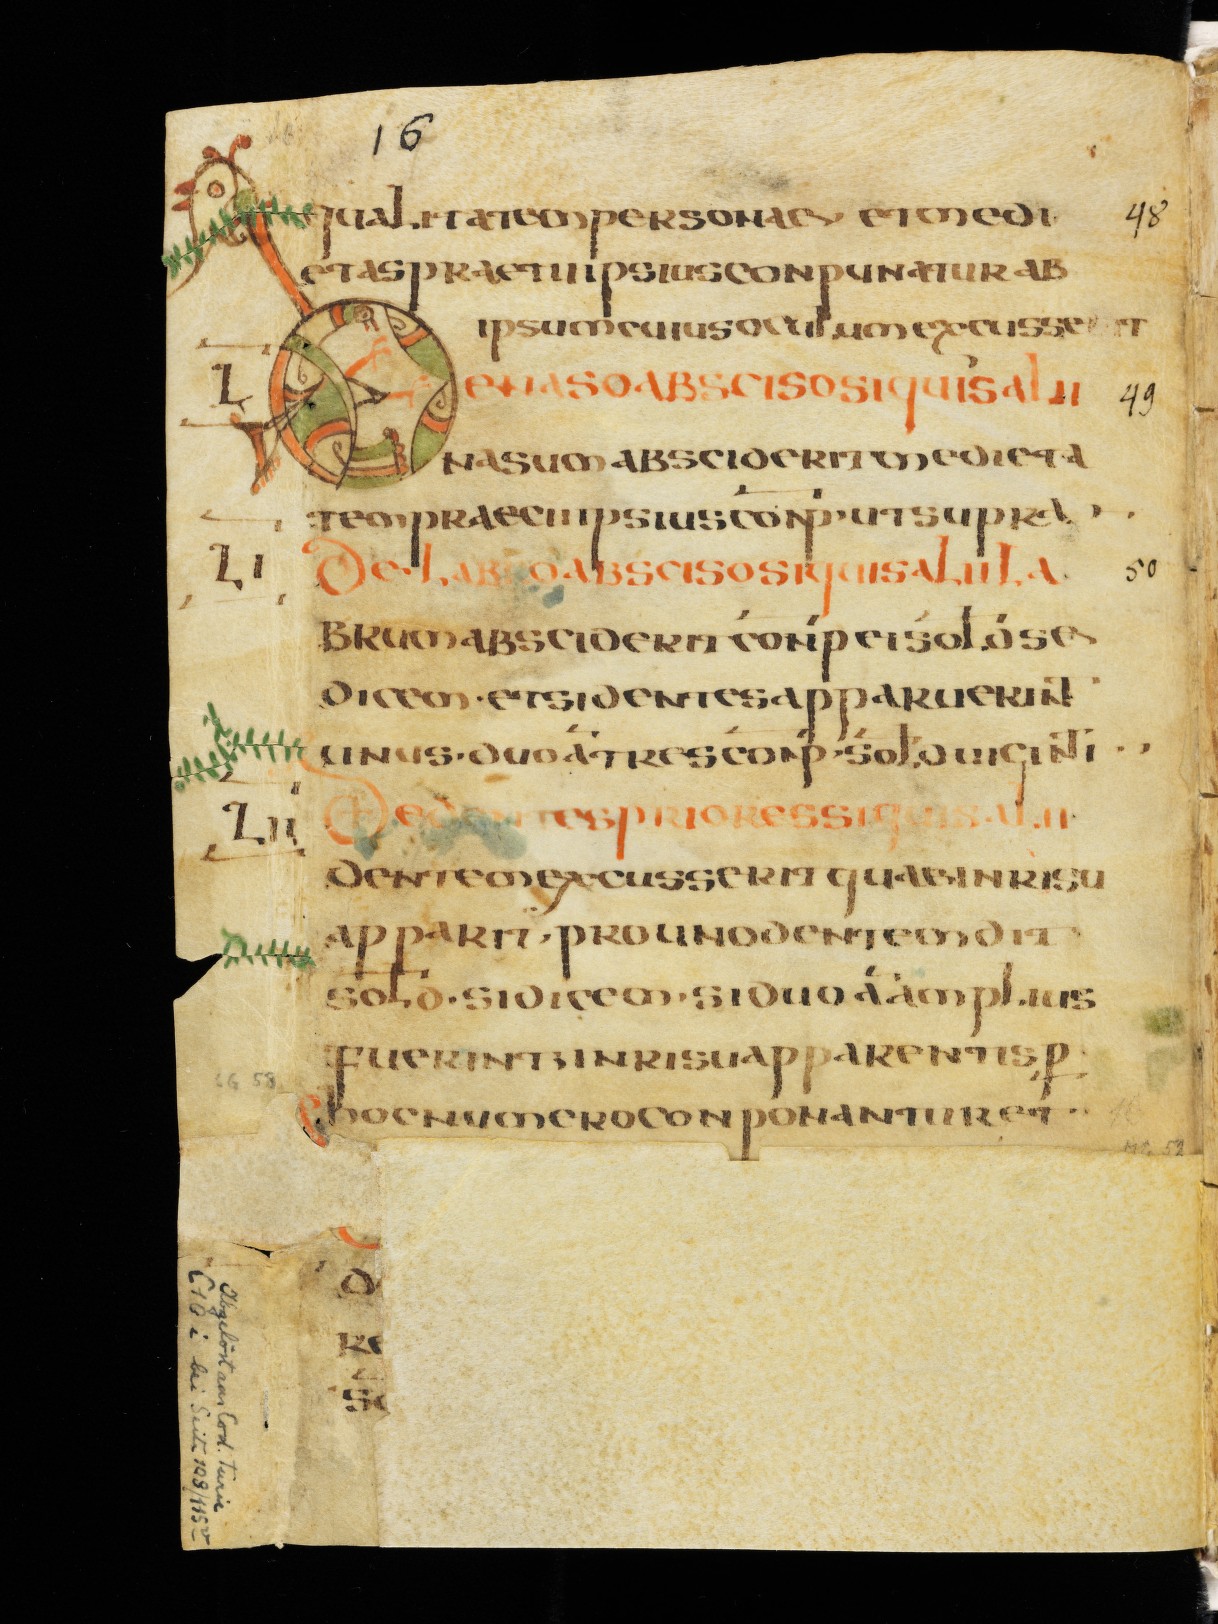 16
qualitatem personaes et medi 48
etas praetii ipsius conpunatur ab
ipsum cuius oculum excusserit
L De naso absciso si quis alii 49
nasum absciderit medieta
tem praecii ipsius conp ut supra
LI De labro absciso si quis alii la 50
brum absciderit conp et sold se
dicem · et si dentes apparuerint
unus · duo at tres conp · sold uiginti
LII De dentes priores si quis alii
dentem excusserit quae in risu
apparit, pro uno dentem dit
sold · sidicem · si duo at amplius
fuerint in risu apparentis p
hoc numero conponantur et ·
SG 58
D
S
Abgelöst aus Cod. Turic
C 10 i bei Seite 108/115v